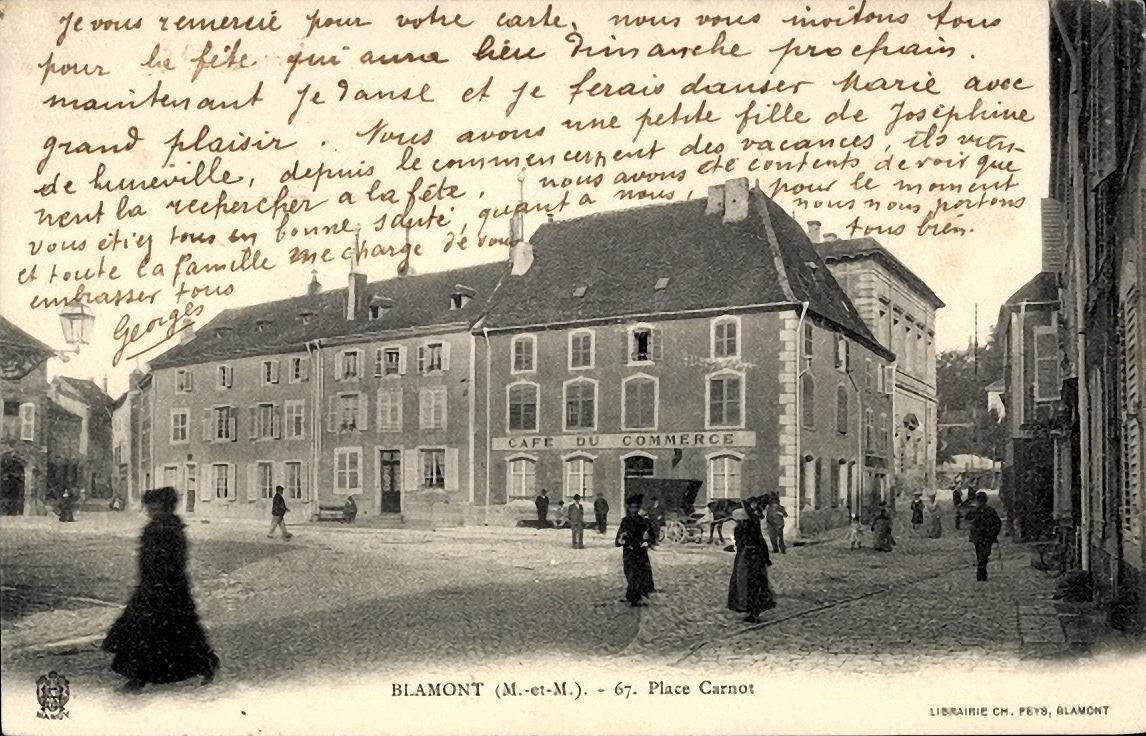 Je vous remercie pour votre carte, nous vous invitons tous
pour la fête qui aura lieu Dimanche prochain.
maintenant je danse et je ferais danser Marie avec
grand plaisir. Nous avons une petite fille de Joséphine
de Luneville, depuis le commencement des vacances, ils vien-
nent la rechercher a la fête, nous avons été contents de voir que
vous étiez tous en bonne santé, quant à nous, pour le moment
nous nous portons
tous bien.
et toute la famille me charge de vous
embrasser tous
Georges
CAFÉ DU COMMERCE
BLAMONT (M.-et-M.). - 67. Place Carnot
LIBRAIRIE CH. FEYS, BLAMONT